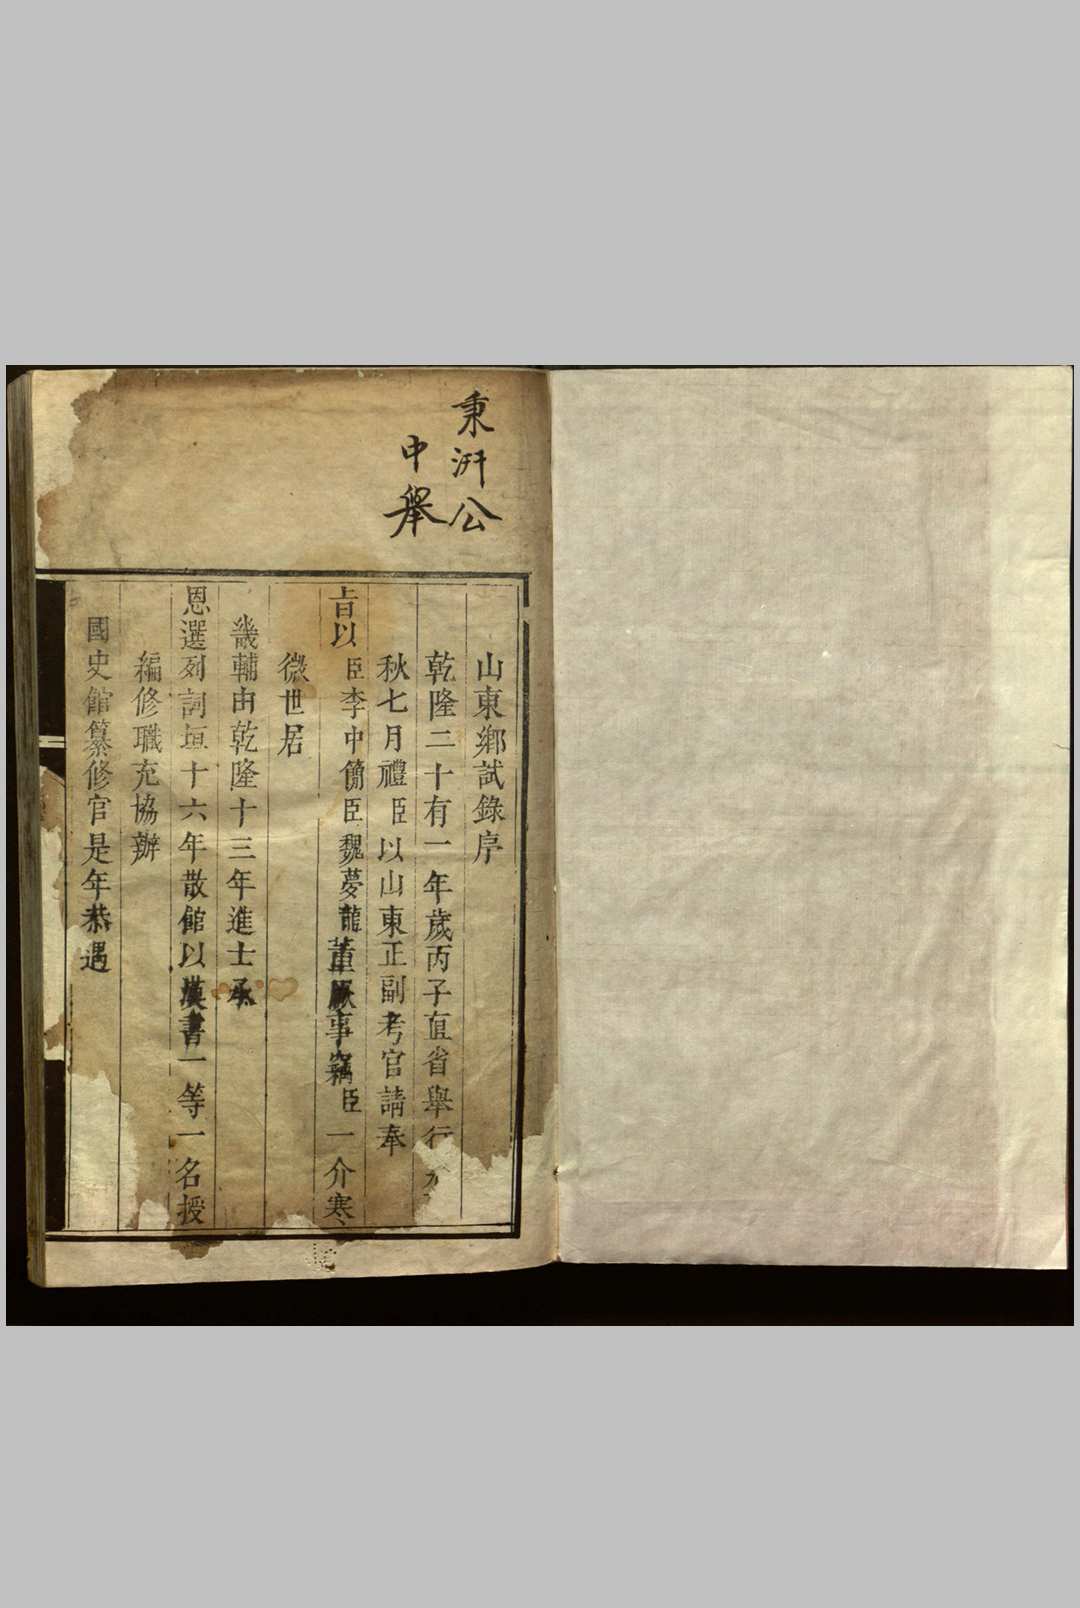 秉汧公
中舉
山東鄉試錄序
乾隆二十有一年歲丙子直省舉行
秋七月禮臣以山東正副考官請奉
旨以臣李中簡臣魏夢龍董厥事竊臣一介寒
微世居
畿輔由乾隆十三年進士承
恩選列詞垣十六年散館以漢書一等一名授
編修職充協辦
國史館纂修官是年恭遇